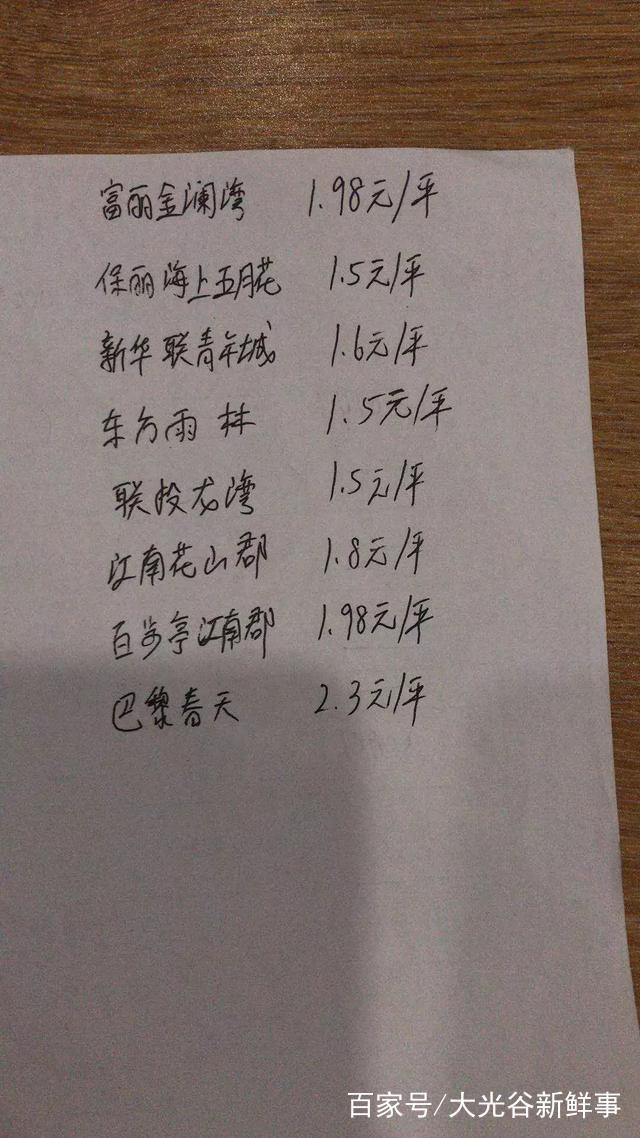 富丽金澜湾 1.98元/平
保丽海上五月花 1.5元/平
新华联青年城 1.6元/平
东方雨林 1.5元/平
联投龙湾 1.5元/平
江南花山郡 1.8元/平
百步亭江南郡 1.98元/平
巴黎春天 2.3元/平
百家号/大光谷新鲜事